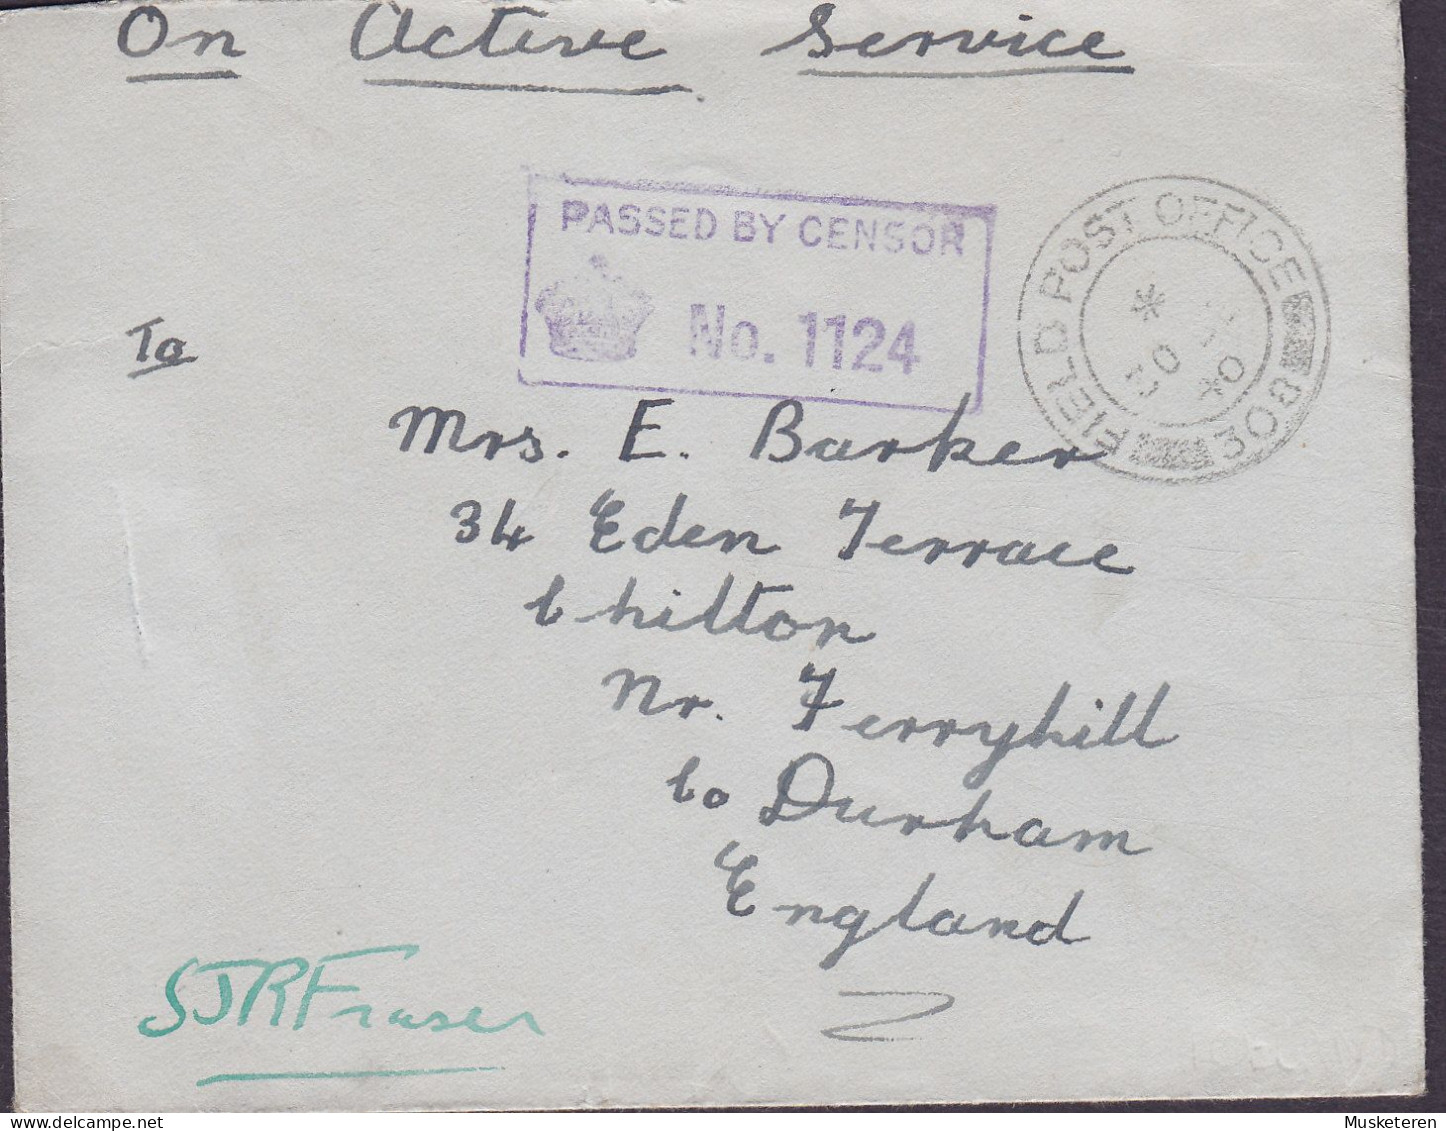 On Active Service
PASSED BY CENSOR
No. 1124
FIELD POST OFFICE 308
* 30
40
To
Mrs. E. Barker
34 Eden Terrace
Chilton
Nr. Ferryhill
Co Durham
England
SJRFraser
Musketeren